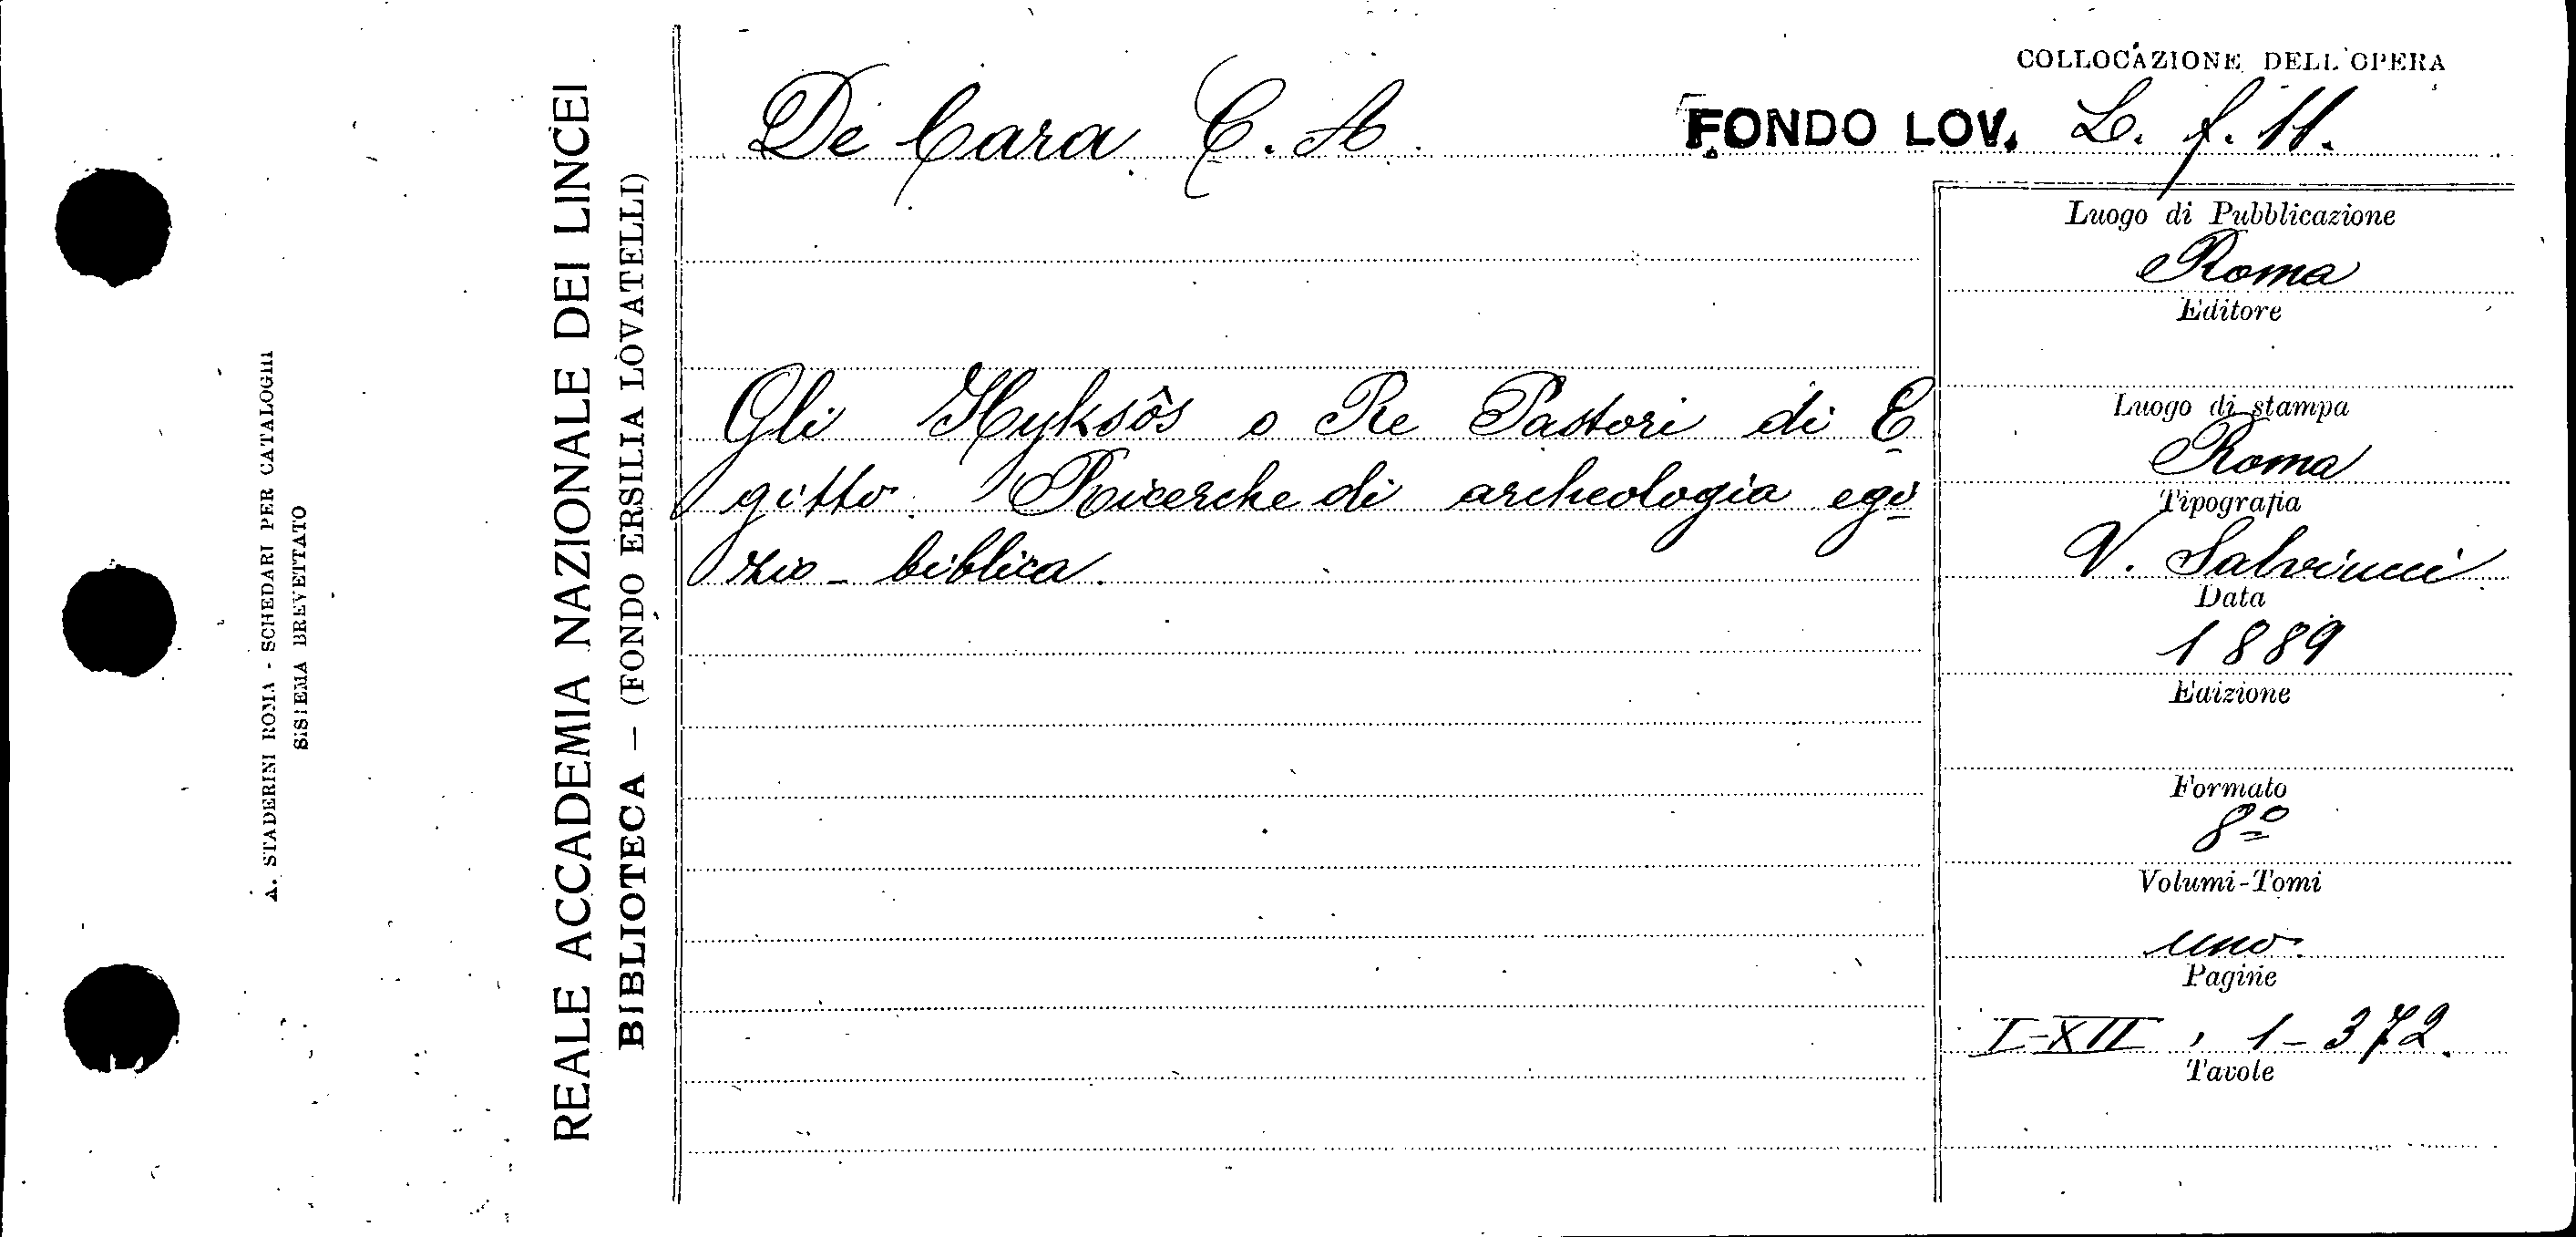 A. STADERINI ROMA - SCHEDARI PER CATALOGHI
SISTEMA BREVETTATO
REALE ACCADEMIA NAZIONALE DEI LINCEI
BIBLIOTECA — (FONDO ERSILIA LOVATELLI)
COLLOCAZIONE DELL'OPERA
De Cara C. A.
FONDO LOV. L. f. 11.
Gli Hyksôs o Re Pastori di E
gitto. Ricerche di archeologia egi
zio - biblica.
Luogo di Pubblicazione
Roma
Editore
Luogo di stampa
Roma
Tipografia
V. Salviucci
Data
1889
Edizione
Formato
8º
Volumi-Tomi
uno.
Pagine
I-XII, 1-372.
Tavole